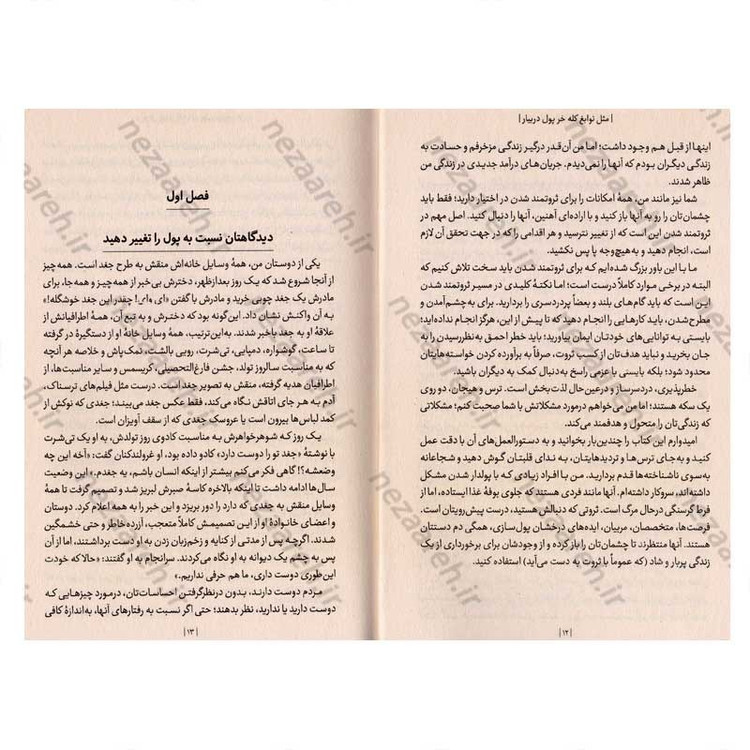 | مثل نوابغ کله خر پول دربیار |
اینها از قبل هم وجود داشت؛ اما من آن‌قدر درگیر زندگی مزخرفم و حسادت به
زندگی دیگران بودم که آنها را نمی‌دیدم. جریان‌های درآمد جدیدی در زندگی من
ظاهر شدند.
شما نیز مانند من، همهٔ امکانات را برای ثروتمند شدن در اختیار دارید؛ فقط باید
چشمان‌تان را رو به آنها باز کنید و با اراده‌ای آهنین، آنها را دنبال کنید. اصل مهم در
ثروتمند شدن این است که از تغییر نترسید و هر اقدامی را که در جهت تحقق آن لازم
است، انجام دهید و به‌هیچ‌وجه پا پس نکشید.
ما با این باور بزرگ شده‌ایم که برای ثروتمند شدن باید سخت تلاش کنیم که
البته در برخی موارد کاملاً درست است؛ اما نکتهٔ کلیدی در مسیر ثروتمند شدن
این است که باید گام‌های بلند و بعضاً پردردسری را بردارید. برای به‌چشم‌آمدن و
مطرح‌شدن، باید کارهایی را انجام دهید که تا پیش از این، هرگز انجام نداده‌اید؛
بایستی به توانایی‌های خودتان ایمان بیاورید؛ باید خطر احمق به‌نظررسیدن را به
جان بخرید و نباید هدف‌تان از کسب ثروت، صرفاً به برآورده کردن خواسته‌هایتان
محدود شود؛ بلکه بایستی با عزمی راسخ به‌دنبال کمک به دیگران باشید.
خطرپذیری، دردسرساز و درعین‌حال لذت‌بخش است. ترس و هیجان، دو روی
یک سکه هستند؛ اما من می‌خواهم درمورد مشکلاتش با شما صحبت کنم؛ مشکلاتی
که زندگی‌تان را متحول و هدفمند می‌کند.
امیدوارم این کتاب را چندین‌بار بخوانید و به دستورالعمل‌های آن با دقت عمل
کنید و به‌جای ترس‌ها و تردیدهایتان، به ندای قلبتان گوش دهید و شجاعانه
به‌سوی ناشناخته‌ها قدم بردارید. من با افراد زیادی که با پولدار شدن مشکل
داشته‌اند، سروکار داشته‌ام. آنها مانند فردی هستند که جلوی بوفهٔ غذا ایستاده، اما از
فرط گرسنگی درحال مرگ است. ثروتی که دنبالش هستید، درست پیش‌رویتان است.
فرصت‌ها، متخصصان، مربیان، ایده‌های درخشان پول‌سازی، همگی دم دستتان
هستند. آنها منتظرند تا چشمان‌تان را باز کرده و از وجودشان برای برخورداری از یک
زندگی پربار و شاد (که عموماً با ثروت به دست می‌آید) استفاده کنید.
| ۱۲ |
فصل اول
دیدگاهتان نسبت به پول را تغییر دهید
یکی از دوستان من، همهٔ وسایل خانه‌اش منقش به طرح جغد است. همه‌چیز
از آنجا شروع شد که یک روز بعدازظهر، دخترش بی‌خبر از همه‌چیز و همه‌جا، برای
مادرش یک جغد چوبی خرید و مادرش با گفتن «ای «ای! چقدر این جغد خوشگله!»
به آن واکنش نشان داد. این‌گونه بود که دخترش و به تبع آن، همهٔ اطرافیانش از
علاقهٔ او به جغد باخبر شدند. به‌این‌ترتیب، همهٔ وسایل خانهٔ او از دستگیرهٔ در گرفته
تا ساعت، گوشواره، دمپایی، تی‌شرت، روبی بالشت، نمک‌پاش و خلاصه هر آنچه
که به مناسبت سالروز تولد، جشن فارغ‌التحصیلی، کریسمس و سایر مناسبت‌ها، از
اطرافیان هدیه گرفته، منقش به تصویر جغد است. درست مثل فیلم‌های ترسناک،
آدم به هر جای اتاقش نگاه می‌کند، فقط عکس جغد می‌بیند؛ جغدی که نوکش از
کمد لباس‌ها بیرون است یا عروسک جغدی که از سقف آویزان است.
یک روز که شوهرخواهرش به مناسبت کادوی روز تولدش، به او یک تی‌شرت
با نوشتهٔ «جغد تو را دوست دارد» کادو داده بود، او غرولندکنان گفت: «آخه این چه
وضعشه؟! گاهی فکر می‌کنم بیشتر از اینکه انسان باشم، یه جغدم.» این وضعیت
سال‌ها ادامه داشت تا اینکه بالاخره کاسهٔ صبرش لبریز شد و تصمیم گرفت تا همهٔ
وسایل منقش به جغدی که دارد را دور بریزد و این خبر را به همه اعلام کرد. دوستان
و اعضای خانوادهٔ او از این تصمیمش کاملاً متعجب، آزرده‌خاطر و حتی خشمگین
شدند. اگرچه پس از مدتی از کنایه و زخم‌زبان زدن به او دست برداشتند، اما از آن
پس به چشم یک دیوانه به او نگاه می‌کردند. سرانجام به او گفتند: «حالا که خودت
این‌طوری دوست داری، ما هم حرفی نداریم.»
مردم دوست دارند، بدون درنظرگرفتن احساسات‌تان، درمورد چیزهایی که
دوست دارید یا ندارید، نظر بدهند؛ حتی اگر نسبت به رفتارهای آنها، به‌اندازهٔ کافی
| ۱۳ |
nezaareh.ir